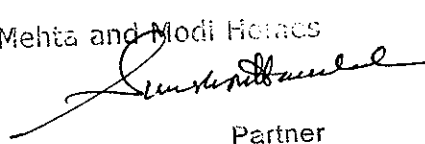 Mehta and Modi Homes
Partner